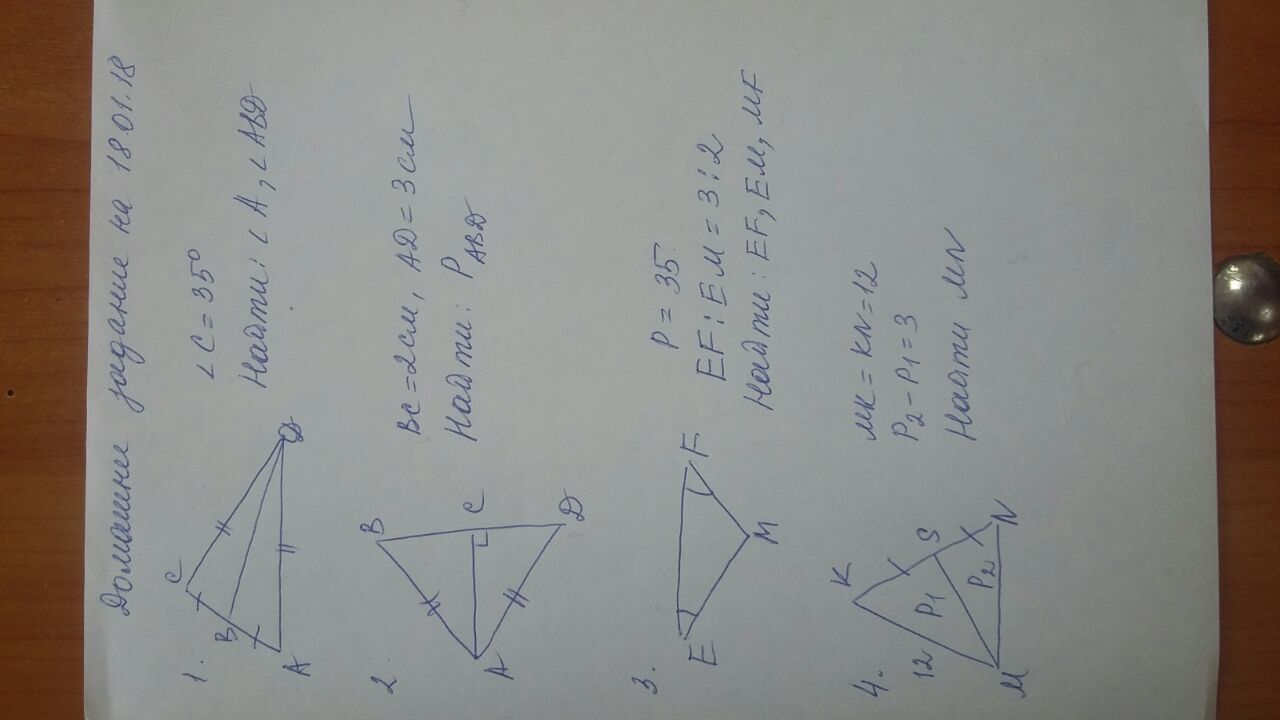 Домашнее задание на 18.01.18
1.
C
B
A
D
∠C = 35°
Найти: ∠A, ∠ABD
2
B
C
A
D
BC = 2см, AD = 3см
Найти: P ABD
3.
E
F
M
P = 35
EF : EM = 3 : 2
Найти: EF, EM, MF
4.
K
S
N
M
12
P1
P2
MK = KN = 12
P2 - P1 = 3
Найти MN